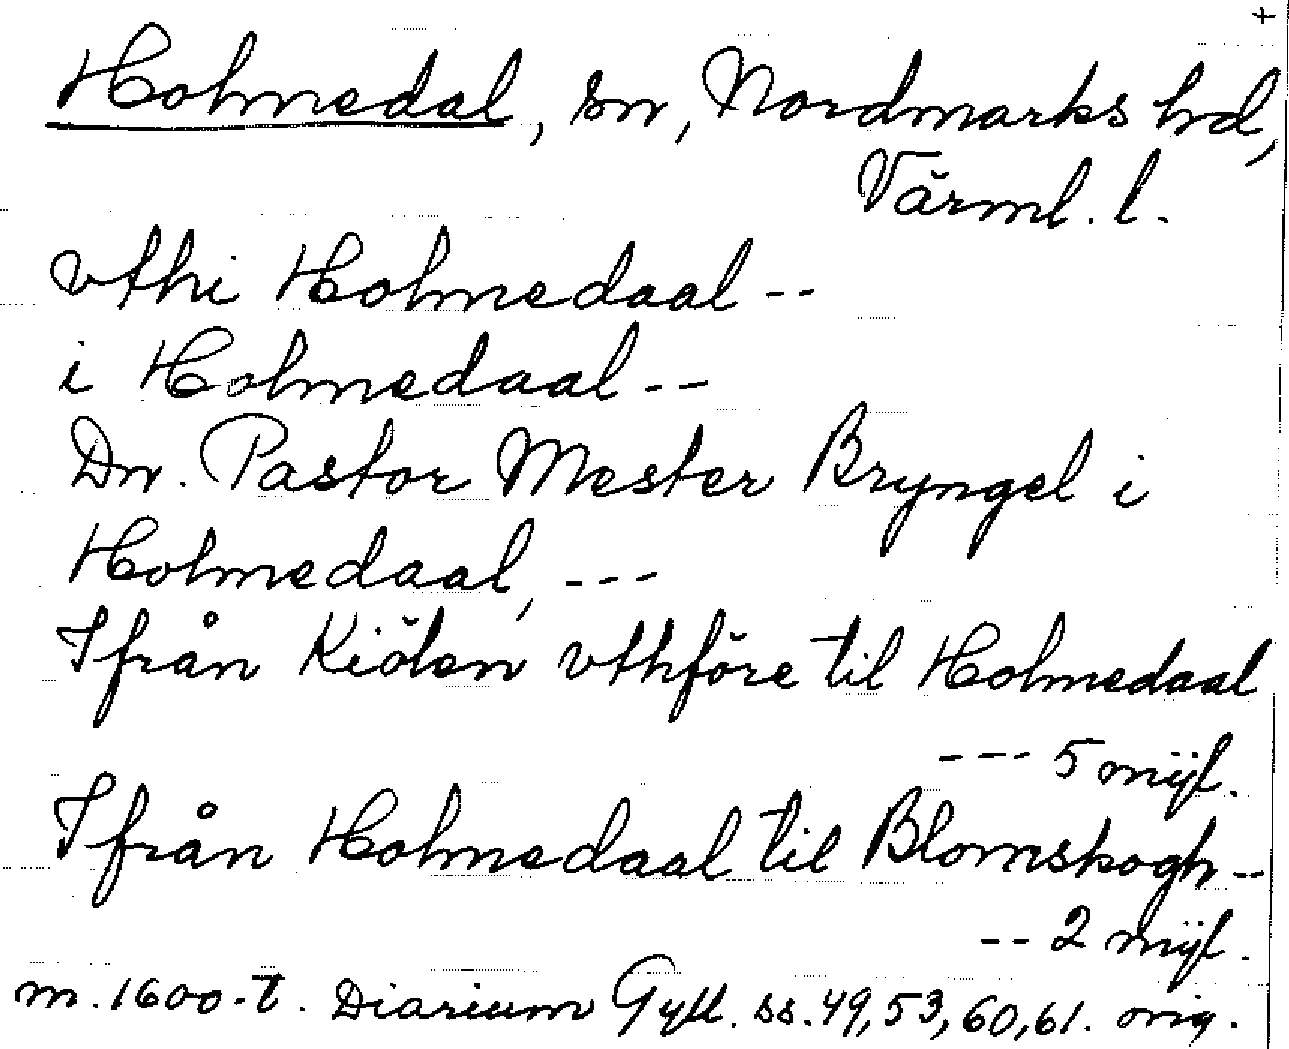 +
Holmedal, sn, Nordmarks hd,
Värml. l.
vthi Holmedaal --
i Holmedaal --
Dn. Pastor Mester Bryngel i
Holmedaal, ---
Ifrån Kiölen vthföre til Holmedaal
--- 5 mijl.
Ifrån Holmedaal til Blomskogh --
-- 2 mijl.
m. 1600-t. Diarium Gyll. ss. 49, 53, 60, 61. orig.